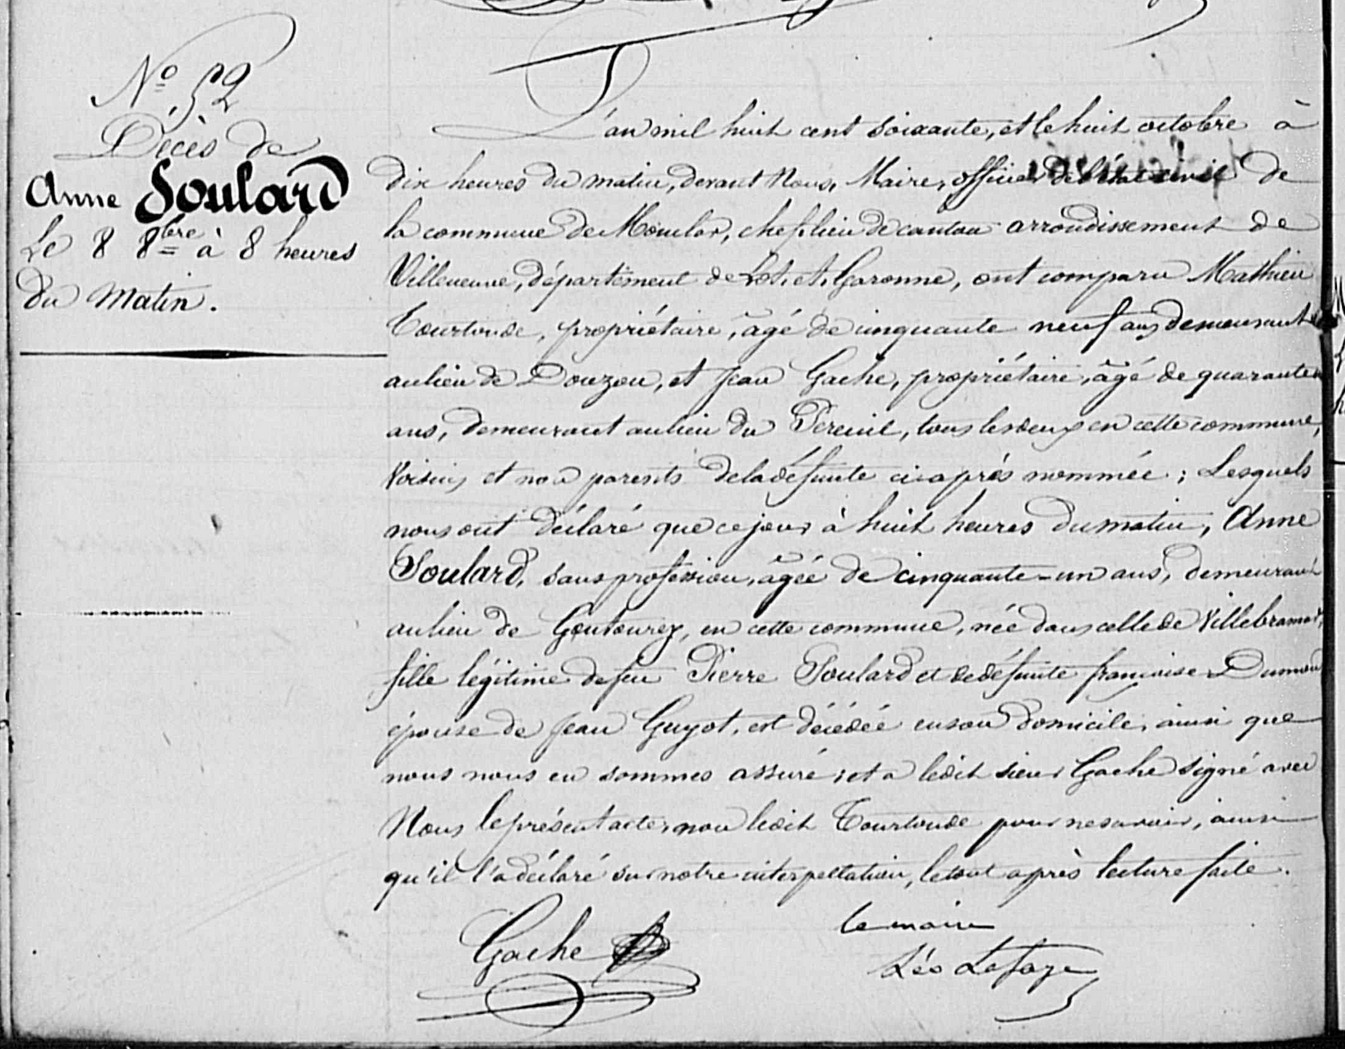 N.º 52
Décès de
Anne Soulard
Le 8 8bre à 8 heures
du matin.
L'an mil huit cent soixante, et le huit octobre à
dix heures du matin, devant Nous, Maire, officier de l'état civil de
la commune de Monclar, chef lieu de canton arrondissement de
Villeneuve, département de Lot, et, Garonne, ont comparu Mathieu
Tourtonde, propriétaire, âgé de cinquante neuf ans demeurant
au lieu de Douzou, et Jean Gache, propriétaire, âgé de quarante
ans, demeurant au lieu du Péreuil, tous les deux en cette commune,
voisins et non parents de la défunte ci-après nommée ; Lesquels
nous ont déclaré que ce jour à huit heures du matin, Anne
Soulard, sans profession, âgée de cinquante-un ans, demeurant
au lieu de en cette commune, née dans celle de Villebramar,
fille légitime de feu Pierre Soulard et de défunte françoise
épouse de Jean Guyot, est décédée en son domicile, ainsi que
nous nous en sommes assuré ; et a ledit sieur Gache signé avec
Nous le présent acte, non ledit Tourtonde pour ne savoir, ainsi
qu'il l'a déclaré sur notre interpellation, le tout après lecture faite.
Gache
le maire
Léo Lafage